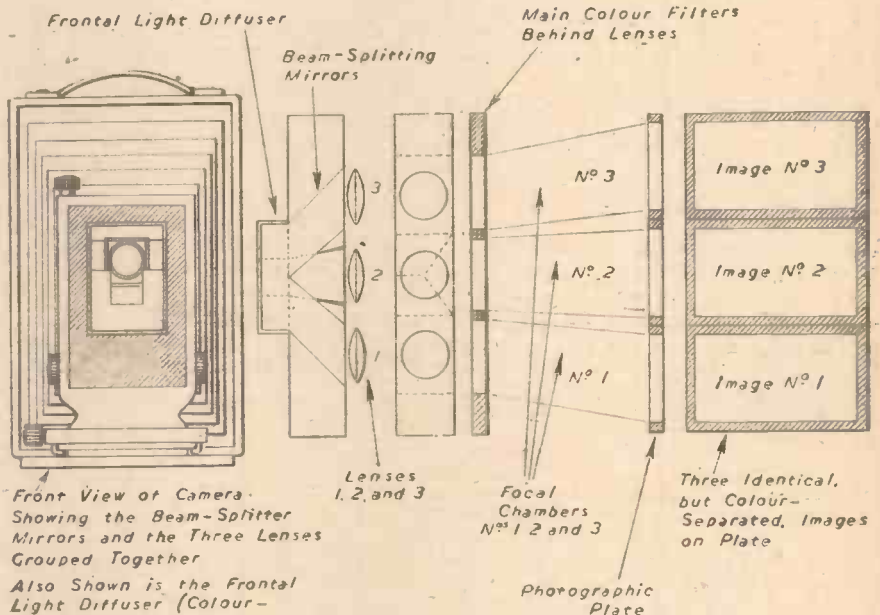 Frontal Light Diffuser
Beam-Splitting
Mirrors
Main Colour Filters
Behind Lenses
3
2
1
Nº 3
Nº 2
Nº 1
Image Nº 3
Image Nº 2
Image Nº 1
Front View of Camera
Showing the Beam-Splitter
Mirrors and the Three Lenses
Grouped Together
Also Shown is the Frontal
Light Diffuser (Colour-
Lenses
1, 2, and 3
Focal
Chambers
Nºs 1 2 and 3
Photographic
Plate
Three Identical,
but Colour-
Separated, Images
on Plate